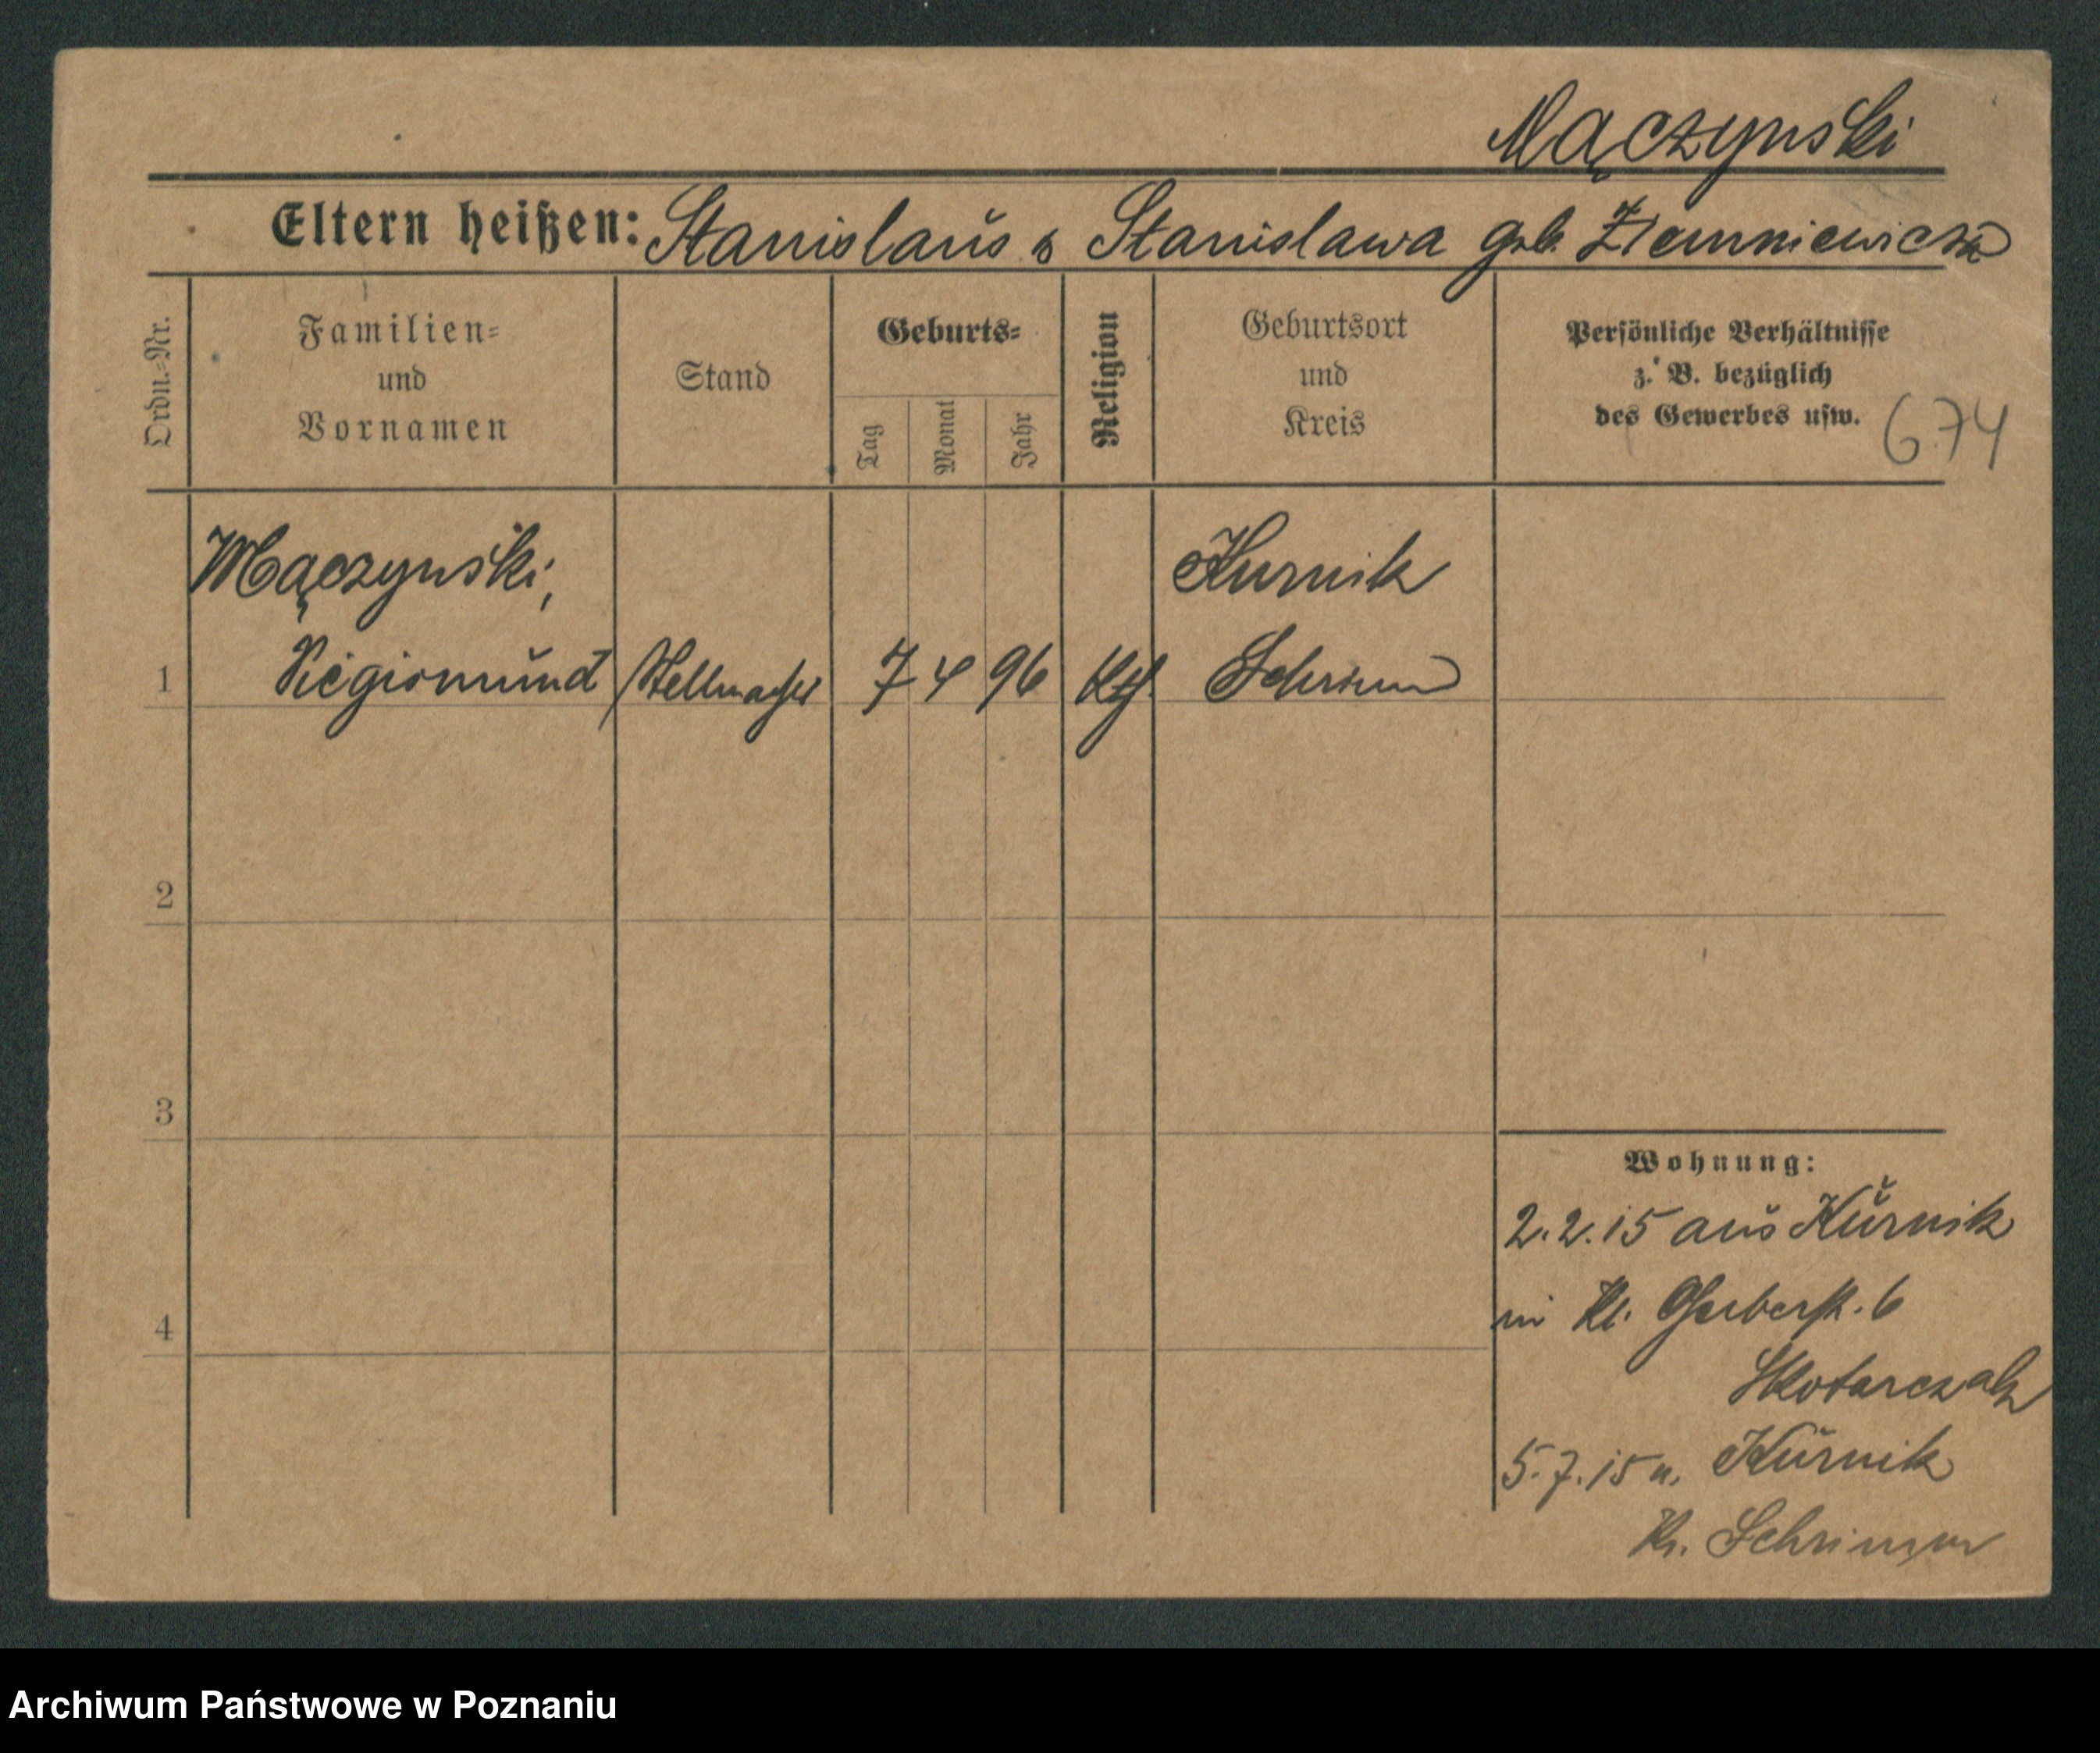 Mączynski
Eltern heißen: Stanislaus & Stanislawa geb. Ziemniewicz
Ordn.-Nr.
Familien-
und
Vornamen
Stand
Geburts-
Tag
Monat
Jahr
Religion
Geburtsort
und
Kreis
Persönliche Verhältnisse
z. B. bezüglich
des Gewerbes usw.
674
Mączynski,
Kurnik
1 Siegismund Stellmacher 7 4 96 kth. Schrimm
2
3
4
Wohnung:
2.2.15 aus Kurnik
in Kl. Gerberstr. 6
Skotarczak
5.7.15 n. Kurnik
Kr. Schrimm
Archiwum Państwowe w Poznaniu